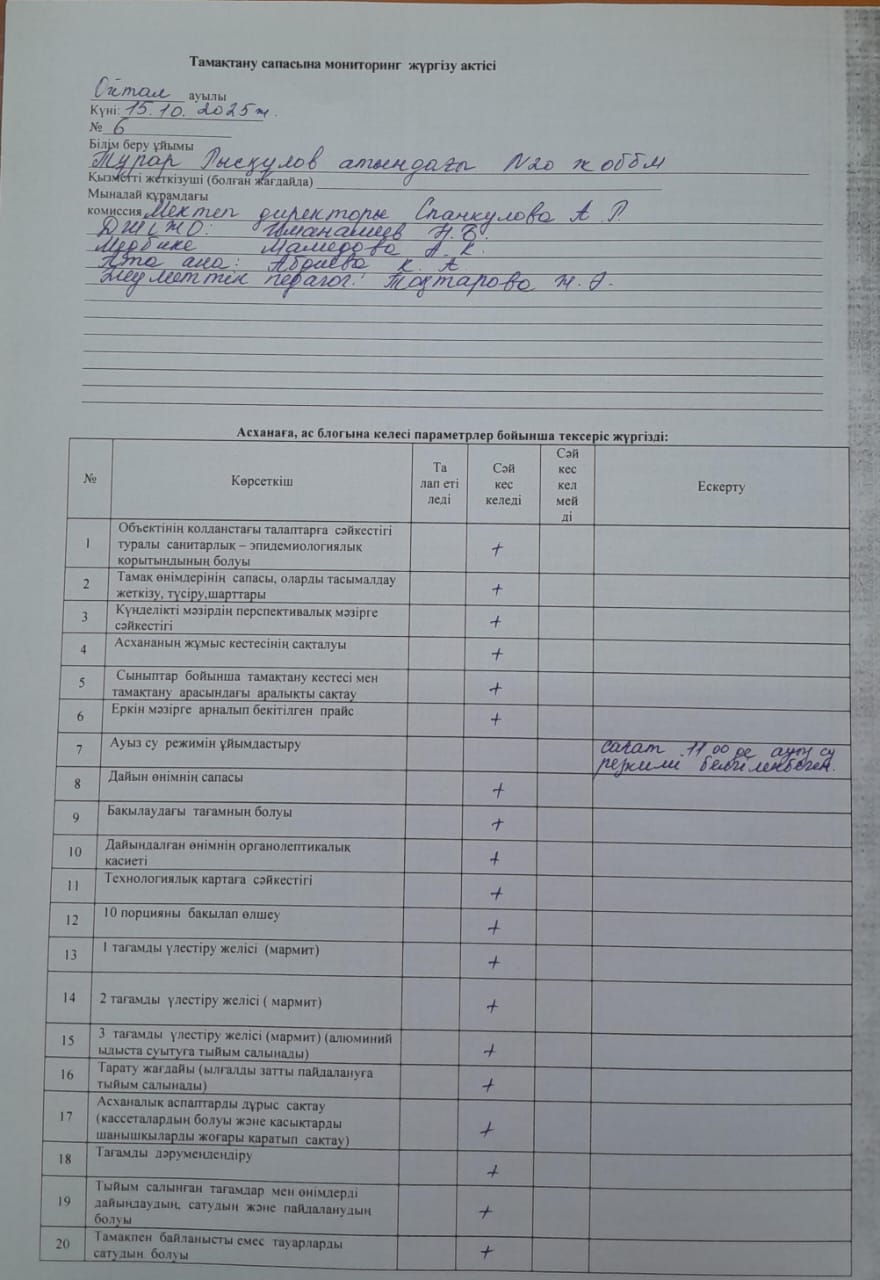 Тамақтану сапасына мониторинг жүргізу актісі
Ойтал ауылы
Күні: 15.10. 2025ж.
№ 6
Білім беру ұйымы
Тұрар Рысқұлов атындағы N20 жоббм
Қызметті жеткізуші (болған жағдайда)
Мынадай құрамдағы
комиссия Мектеп директоры Спанкулова А Р.
ДТІЖО: Иманалиев Н.Б.
Медбике Мамедова А. К.
Ата ана: Абдиева К. А
Әлеуметтік педагог: Тоқтарова Ж. Ә.
Асханаға, ас блогына келесі параметрлер бойынша тексеріс жүргізді:
№ Көрсеткіш Та лап еті леді Сәй кес келеді Сәй кес кел мей ді Ескерту
1 Объектінің қолданстағы талаптарға сәйкестігі
туралы санитарлық – эпидемиологиялық +
қорытындының болуы
2 Тамақ өнімдерінің сапасы, оларды тасымалдау
жеткізу, түсіру,шарттары +
3 Күнделікті мәзірдің перспективалық мәзірге
сәйкестігі +
4 Асхананың жұмыс кестесінің сақталуы +
5 Сыныптар бойынша тамақтану кестесі мен
тамақтану арасындағы аралықты сақтау +
6 Еркін мәзірге арналып бекітілген прайс +
7 Ауыз су режимін ұйымдастыру сағат 11 00 де ауыз су
режимі белгіленбеген.
8 Дайын өнімнің сапасы +
9 Бақылаудағы тағамның болуы +
10 Дайындалған өнімнің органолептикалық
қасиеті +
11 Технологиялық картаға сәйкестігі +
12 10 порцияны бақылап өлшеу +
13 1 тағамды үлестіру желісі (мармит) +
14 2 тағамды үлестіру желісі ( мармит) +
15 3 тағамды үлестіру желісі (мармит) (алюминий
ыдыста суытуға тыйым салынады) +
16 Тарату жағдайы (ылғалды затты пайдалануға
тыйым салынады) +
17 Асханалық аспаптарды дұрыс сақтау
(кассеталардың болуы және қасықтарды
шанышқыларды жоғары қаратып сақтау) +
18 Тағамды дәрумендендіру +
19 Тыйым салынған тағамдар мен өнімдерді
дайындаудың, сатудың және пайдаланудың +
болуы
20 Тамақпен байланысты емес тауарларды
сатудың болуы +